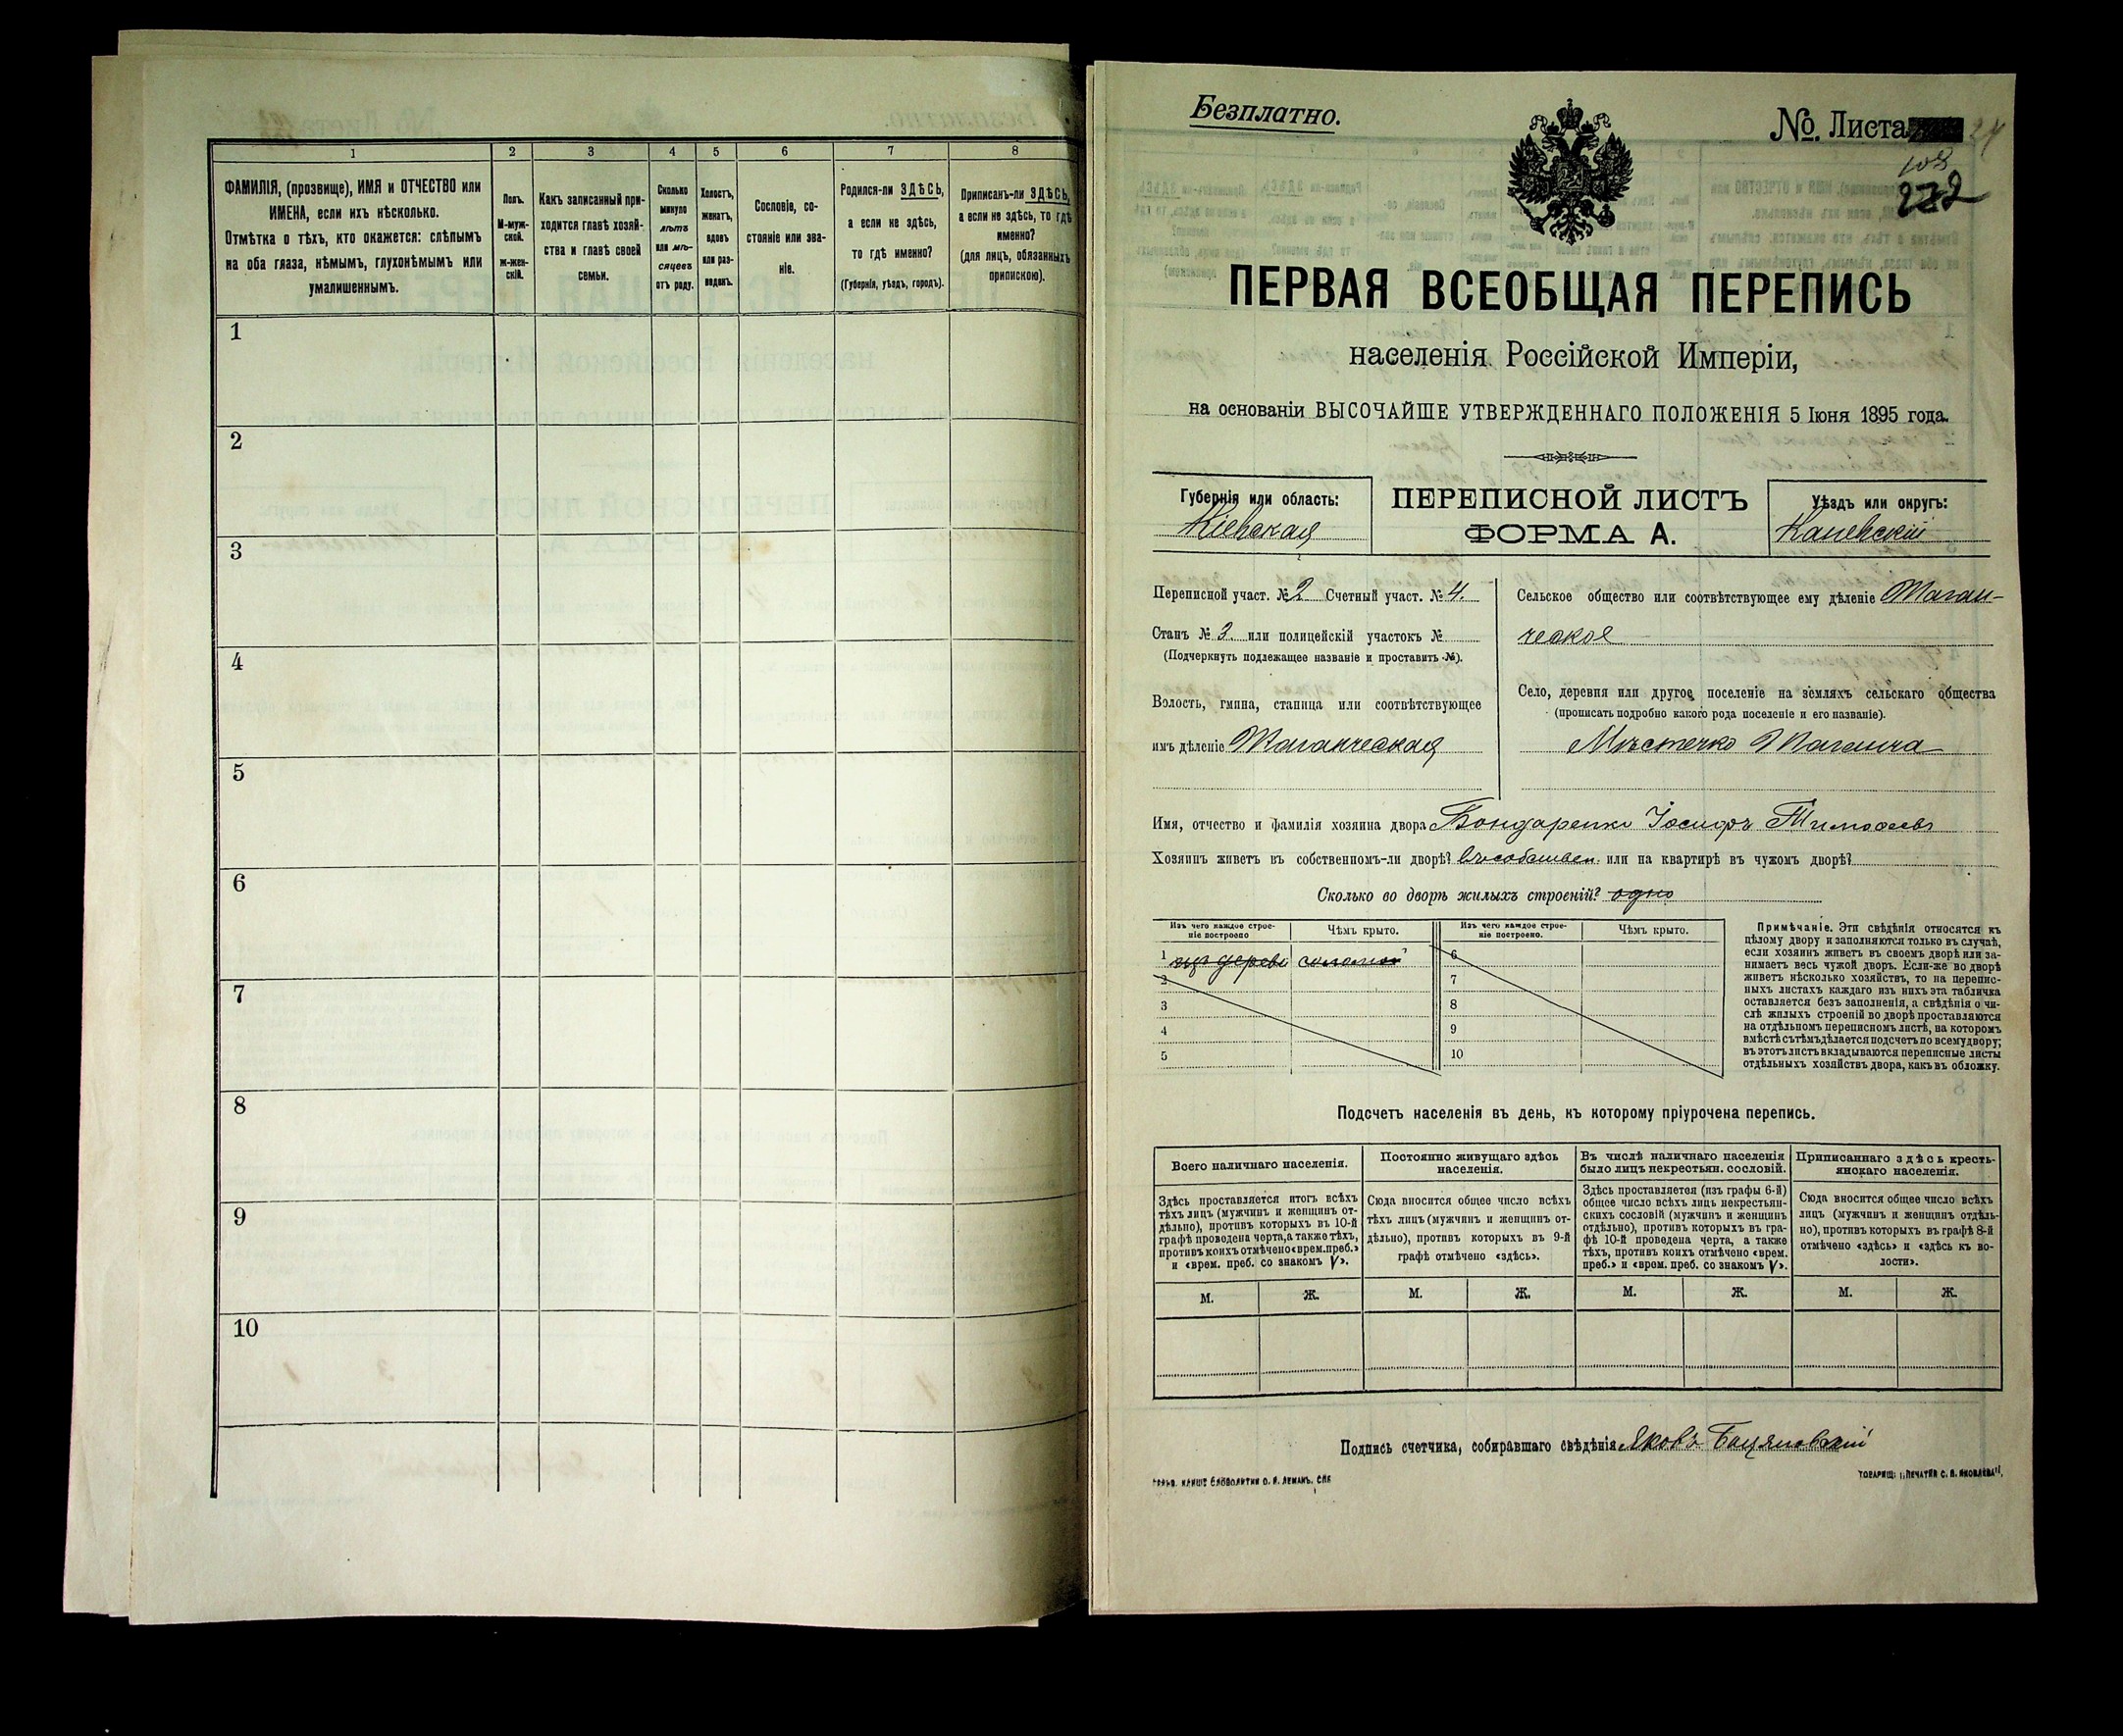 1 2 3 4 5 6 7 8
ФАМИЛІЯ, (прозвище), ИМЯ и ОТЧЕСТВО или
ИМЕНА, если ихъ нѣсколько.
Отмѣтка о тѣхъ, кто окажется: слѣпымъ
на оба глаза, нѣмымъ, глухонѣмымъ или
умалишеннымъ.
Полъ.
М-муж-
ской.
Ж-жен-
скій.
Какъ записанный при-
ходится главѣ хозяй-
ства и главѣ своей
семьи.
Сколько
минуло
лѣтъ
или мѣ-
сяцевъ
отъ роду.
Холостъ,
женатъ,
вдовъ
или раз-
веденъ.
Сословіе, со-
стояніе или зва-
ніе.
Родился-ли ЗДѢСЬ,
а если не здѣсь,
то гдѣ именно?
(Губернія, уѣздъ, городъ).
Приписанъ-ли ЗДѢСЬ,
а если не здѣсь, то гдѣ
именно?
(для лицъ, обязанныхъ
припискою).
1
2
3
4
5
6
7
8
9
10
Безплатно.
№ Листа 24
108
222
ПЕРВАЯ ВСЕОБЩАЯ ПЕРЕПИСЬ
населенія Россійской Имперіи,
на основаніи ВЫСОЧАЙШЕ УТВЕРЖДЕННАГО ПОЛОЖЕНІЯ 5 Іюня 1895 года.
Губернія или область:
Кіевская
ПЕРЕПИСНОЙ ЛИСТЪ
ФОРМА А.
Уѣздъ или округъ:
Каневскій
Переписной участ. № 2 Счетный участ. № 4.
Станъ № 3. или полицейскій участокъ №
(Подчеркнуть подлежащее названіе и проставить №).
Волость, гмина, станица или соотвѣтствующее
имъ дѣленіе Таганческая
Сельское общество или соотвѣтствующее ему дѣленіе Таган-
ческое
Село, деревня или другое поселеніе на земляхъ сельскаго общества
(прописать подробно какого рода поселеніе и его названіе).
Мѣстечко Таганча
Имя, отчество и фамилія хозяина двора Бондаренко Іосифъ Тимофеевъ
Хозяинъ живетъ въ собственномъ-ли дворѣ? въ собствен. или на квартирѣ въ чужомъ дворѣ?
Сколько во дворѣ жилыхъ строеній? одно
Изъ чего каждое строе-
ніе построено
Чѣмъ крыто.
Изъ чего каждое строе-
ніе построено.
Чѣмъ крыто.
1 изъ дерева соломой 6
2 7
3 8
4 9
5 10
Примѣчаніе. Эти свѣдѣнія относятся къ
цѣлому двору и заполняются только въ случаѣ,
если хозяинъ живетъ въ своемъ дворѣ или за-
нимаетъ весь чужой дворъ. Если-же во дворѣ
живетъ нѣсколько хозяйствъ, то на перепис-
ныхъ листахъ каждаго изъ нихъ эта табличка
оставляется безъ заполненія, а свѣдѣнія о чи-
слѣ жилыхъ строеній во дворѣ проставляются
на отдѣльномъ переписномъ листѣ, на которомъ
вмѣстѣ съ тѣмъ дѣлается подсчетъ по всему двору;
въ этотъ листъ вкладываются переписные листы
отдѣльныхъ хозяйствъ двора, какъ въ обложку.
Подсчетъ населенія въ день, къ которому пріурочена перепись.
Всего наличнаго населенія.
Постоянно живущаго здѣсь
населенія.
Въ числѣ наличнаго населенія
было лицъ некрестьян. сословій.
Приписаннаго здѣсь кресть-
янскаго населенія.
Здѣсь проставляется итогъ всѣхъ
тѣхъ лицъ (мужчинъ и женщинъ от-
дѣльно), противъ которыхъ въ 10-й
графѣ проведена черта, а также тѣхъ,
противъ коихъ отмѣчено «врем. преб.»
и «врем. преб. со знакомъ V».
Сюда вносится общее число всѣхъ
тѣхъ лицъ (мужчинъ и женщинъ от-
дѣльно), противъ которыхъ въ 9-й
графѣ отмѣчено «здѣсь».
Здѣсь проставляется (изъ графы 6-й)
общее число всѣхъ лицъ некрестьян-
скихъ сословій (мужчинъ и женщинъ
отдѣльно), противъ которыхъ въ гра-
фѣ 10-й проведена черта, а также
тѣхъ, противъ коихъ отмѣчено «врем.
преб.» и «врем. преб. со знакомъ V».
Сюда вносится общее число всѣхъ
лицъ (мужчинъ и женщинъ отдѣль-
но), противъ которыхъ въ графѣ 8-й
отмѣчено «здѣсь» и «здѣсь къ во-
лости».
М. Ж. М. Ж. М. Ж. М. Ж.
Подпись счетчика, собиравшаго свѣдѣнія Яковъ Бацановскій
СЛОВОЛИТНИ О. И. ЛЕМАНЪ. СПБ
ТОВАРИЩ. „ПЕЧАТНЯ С. П. ЯКОВЛЕВА“.